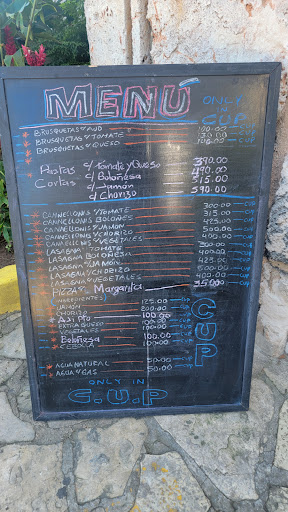 MENÚ
ONLY
IN
CUP
BRUSQUETAS S/AJO 100.00 CUP
BRUSQUETAS S/TOMATE CUP
BRUSQUETAS S/QUESO 100.00 CUP
Pastas c/ Tomate y Queso 390.00
Cortas c/ Boloñesa 490.00
c/ Jamón 515.00
c/ Chorizo 590.00
CANNELLONIS S/TOMATE 300.00 CUP
CANNELLONIS BOLOÑES 315.00 CUP
CANNELLONIS S/JAMON 425.00 CUP
CANNELLONIS S/CHORIZO 500.00 CUP
CANNELLONIS S/VEGETALES 400.00 CUP
LASAGNA TOMATE CUP
LASAGNA BOLOÑESA 400.00 CUP
LASAGNA S/JAMON 425.00 CUP
LASAGNA S/CHORIZO 500.00 CUP
LASAGNA VEGETALES 400.00 CUP
PIZZAS Margarita 350.00
INGREDIENTES
JAMON 125.00 CUP
CHORIZO 200.00 CUP
Aji Pto 100.00 CUP
EXTRA QUESO 100.00 CUP
VEGETALES 100.00 CUP
Boloñesa 100.00 CUP
CEBOLLA 100.00 CUP
CUP
AGUA NATURAL 50.00 CUP
AGUA Y GAS 50.00 CUP
ONLY IN
C.U.P